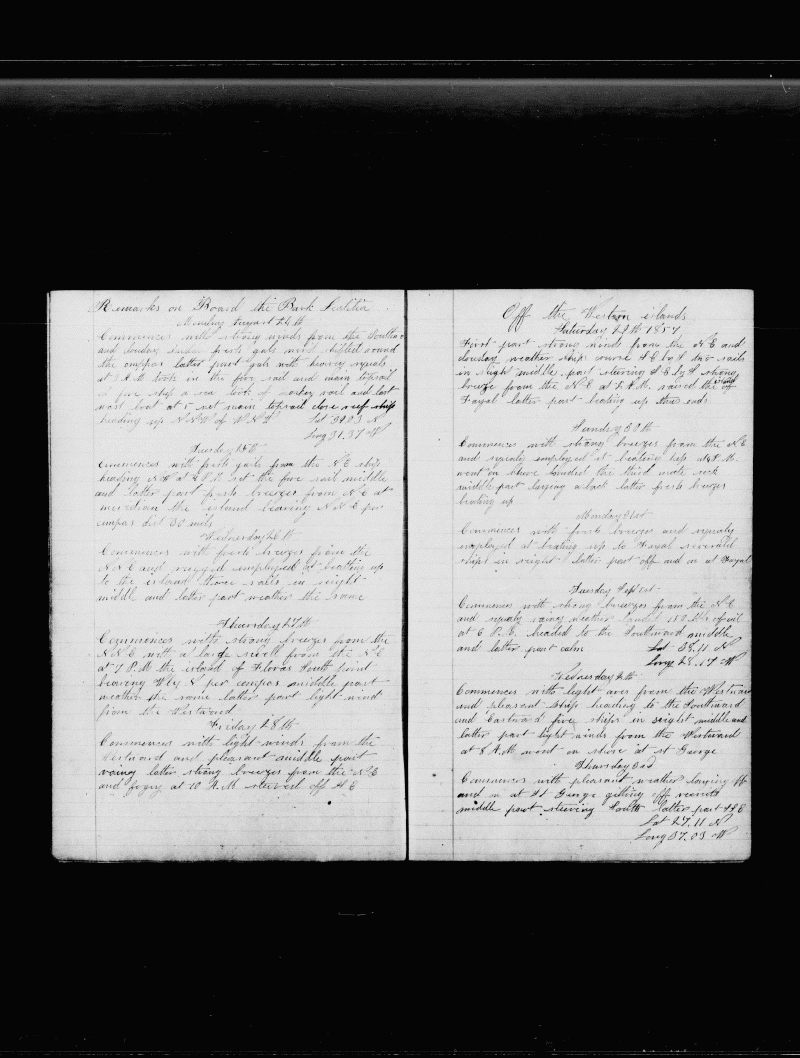 Remarks on Board the Bark Letitia
Monday August 24th
Commences with strong winds from the Southward
and cloudy under fresh gale wind shifted round
the compas latter part gale with heavy squals
at 3 A.M took in the fore sail and main topsail
at five ship a sea took of and lost
wast boat at 5 set main topsail close reef ship
heading up N.N.W of W.N.W Lat 39.03 N
Long 31.37 W
Tuesday 25th
Commences with fresh gale from the N.E ship
heading N.W at P.M set the fore sail middle
and latter part fresh breezes from N.E at
meridian the island bearing N.N.E per
compas dist 30 mils
Wednesday 26th
Commences with fresh breezes from the
N.N.E and rugged employed at beatting up
to the island three sails in seight
middle and latter part weather the same
Thursday 27th
Commences with strong breezes from the
N.N.E with a large swell from the N.E
at 7 P.M the island of Floras South point
bearing WbyN per compas middle part
weather the same latter part light wind
from the Westward
Friday 28th
Commences with light winds from the
Westward and pleasant middle part
rainy latter strong breezes from the N.E
and fogey at 10 A.M steered off S E
Off the Western islands
Saturday 29th 1857
First part strong winds from the N.E and
cloudey weather ship course S.E by S two sails
in seight middle part steering S.E by S strong
breeze from the N.E at 2 A.M. raised the island of
Fayal latter part beating up three sails
Sunday 30th
Commences with strong breezes from the N.E
and squaly employed at beating up at 4 P.M.
went on shore landed the third mate sick
middle part laying aback latter fresh breezes
beating up
Monday 31st
Commences with fresh breezes and squaly
employed at beating up to Fayal several
ships in seight latter part off and on at Fayal
Tuesday Sept 1st
Commences with strong breezes from the N.E
and squaly rainy weather landed 180 bls of oil
at 6 P.M. headed to the Southward middle
and latter part calm Lat 38.11 N
Long 28.17 W
Wednesday 2th
Commences with light ares from the Westward
and pleasant ship heading to the Southward
and Eastward five ships in seight middle and
latter part light winds from the Westward
at 8 A.M went on shore at st George
Thursday 3rd
Commences with pleasant weather laying off
and on at St George gitting off recruits
middle part steering South latter part SSE
Lat 27.11 N
Long 37.03 W